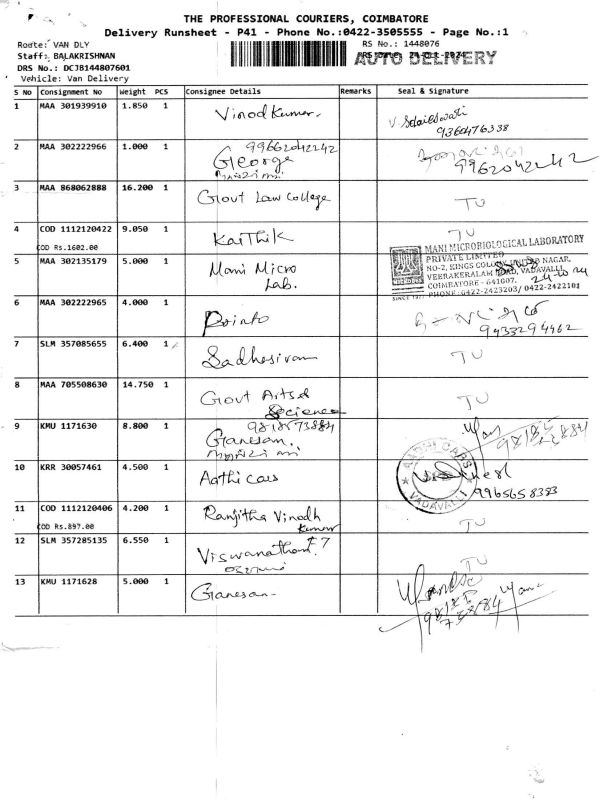 THE PROFESSIONAL COURIERS, COIMBATORE
Delivery Runsheet - P41 - Phone No.:0422-3505555 - Page No.:1
Route: VAN DLY
RS No.: 1448076
Staff: BALAKRISHNAN
24-Oct-2024
AUTO DELIVERY
DRS No.: DCJB144807601
Vehicle: Van Delivery
S No Consignment No Weight PCS Consignee Details Remarks Seal & Signature
1 MAA 301939910 1.850 1 Vinod Kumar.
9360476338
2 MAA 302222966 1.000 1 99662042242 George
9962042242
3 MAA 868062888 16.200 1 Govt Law College TU
4 COD 1112120422 9.050 1 Karthik TU
COD Rs.1602.00
5 MAA 302135179 5.000 1 Mani Micro Lab.
MANI MICROBIOLOGICAL LABORATORY
PRIVATE LIMITED
NO-2, KINGS COLONY, NAGAR,
VEERAKERALAM ROAD, VADAVALLI,
COIMBATORE - 641007. 24-10-24
PHONE: 0422-2423203/ 0422-2422101
6 MAA 302222965 4.000 1
9433294462
7 SLM 357085655 6.400 1 Sadhasivam TU
8 MAA 705508630 14.750 1 Govt Arts & Science TU
9 KMU 1171630 8.800 1 9818573884 Ganesan.
10 KRR 30057461 4.500 1 Aathi Cars
AADHI CARS
VADAVALLI
9965658383
11 COD 1112120406 4.200 1 Ranjitha Vinodh Kumar TU
COD Rs.897.00
12 SLM 357285135 6.550 1 Viswanathan. TU
13 KMU 1171628 5.000 1 Ganesan.